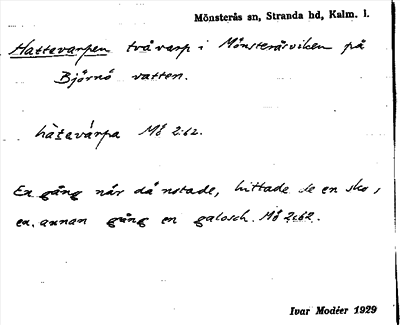 Mönsterås sn, Stranda hd, Kalm. l.
Hattevarpen två varp i Mönsteråsviken på
Björnö vatten.
hàtevárpa Mö 2:62.
En gång när då notade, hittade de en sko,
en annan gång en galosch. Mö 2:62.
Ivar Modéer 1929